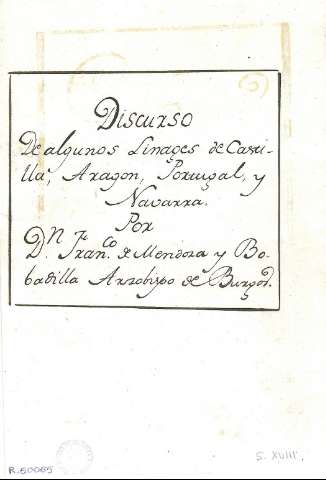 (5)
Discurso
De algunos Linages de Casti-
lla, Aragon, Portugal, y
Navarra.
Por
D.n Fran.co de Mendoza y Bo-
badilla Arzobispo de Burgos.
S. XVIII.
R.50065